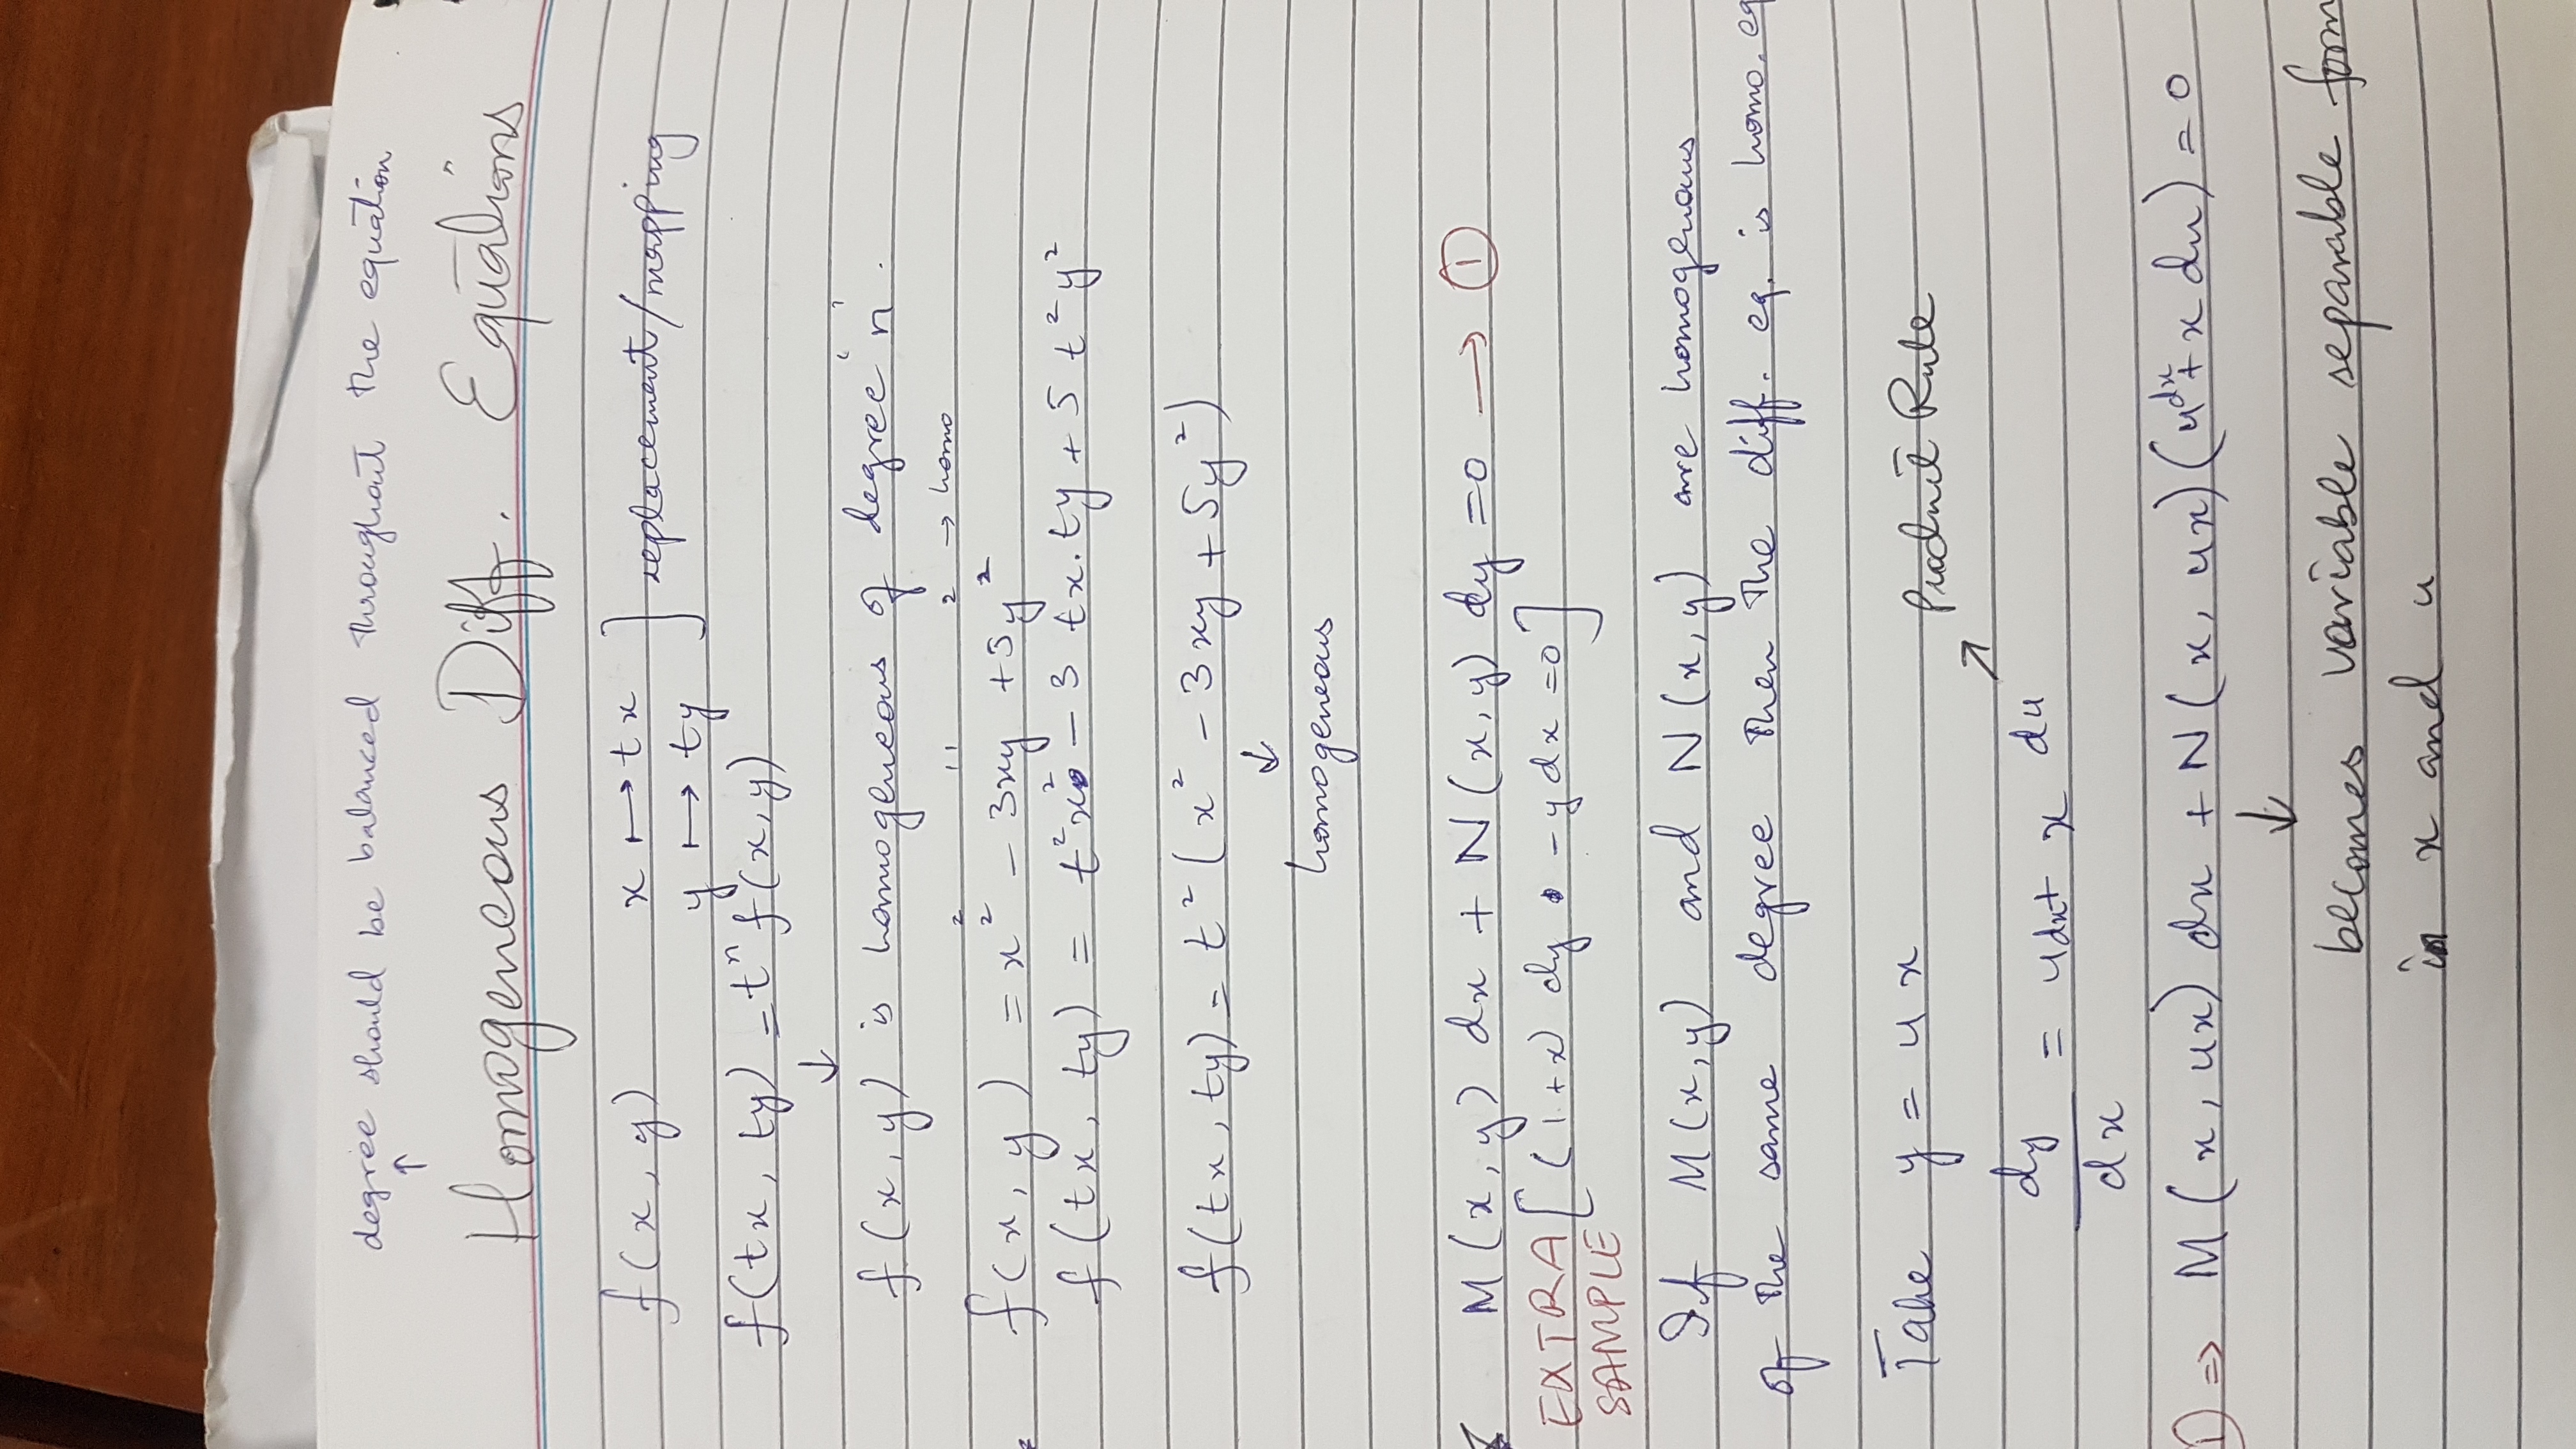 degree should be balanced throughout the equation
↑
Homogeneous Diff. Equations
f(x, y) x ↦ tx ] replacement/mapping
y ↦ ty
f(tx, ty) = tⁿ f(x, y)
↓
f(x, y) is homogeneous of degree 'n'.
2 11 2 → homo
f(x, y) = x² - 3xy + 5y²
f(tx, ty) = t²x² - 3 tx.ty + 5 t²y²
f(tx, ty) = t² (x² - 3xy + 5y²)
↓
homogeneous
M(x, y) dx + N(x, y) dy = 0 → ①
EXTRA SAMPLE [(1+x) dy - y dx = 0]
If M(x,y) and N(x,y) are homogenous
of the same degree then the diff. eq. is homo. eq
Take y = ux
Product Rule
↗
dy/dx = udx + x du
① ⇒ M(x, ux) dx + N(x, ux)(udx + x du) = 0
↓
becomes variable separable form
in x and u